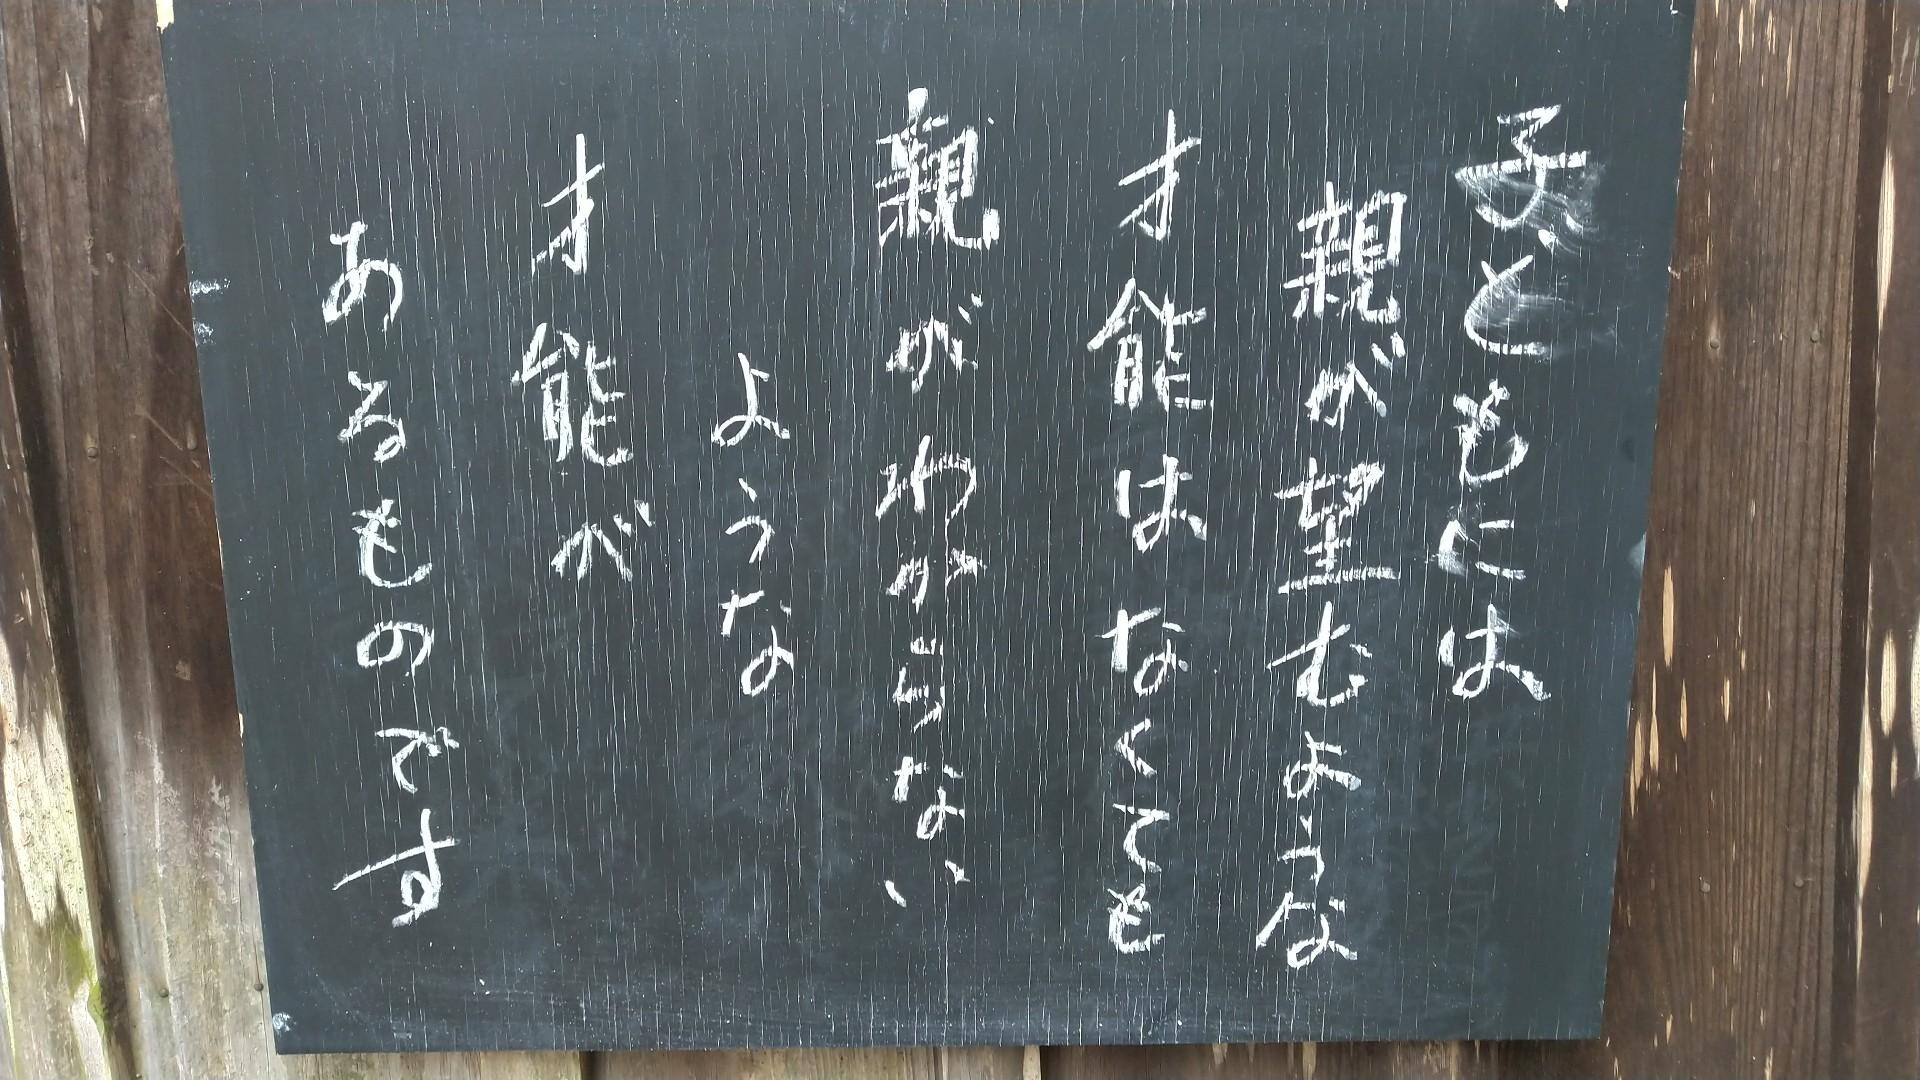 子どもには
親が望むような
才能はなくても
親がわからない
ような
才能が
あるものです